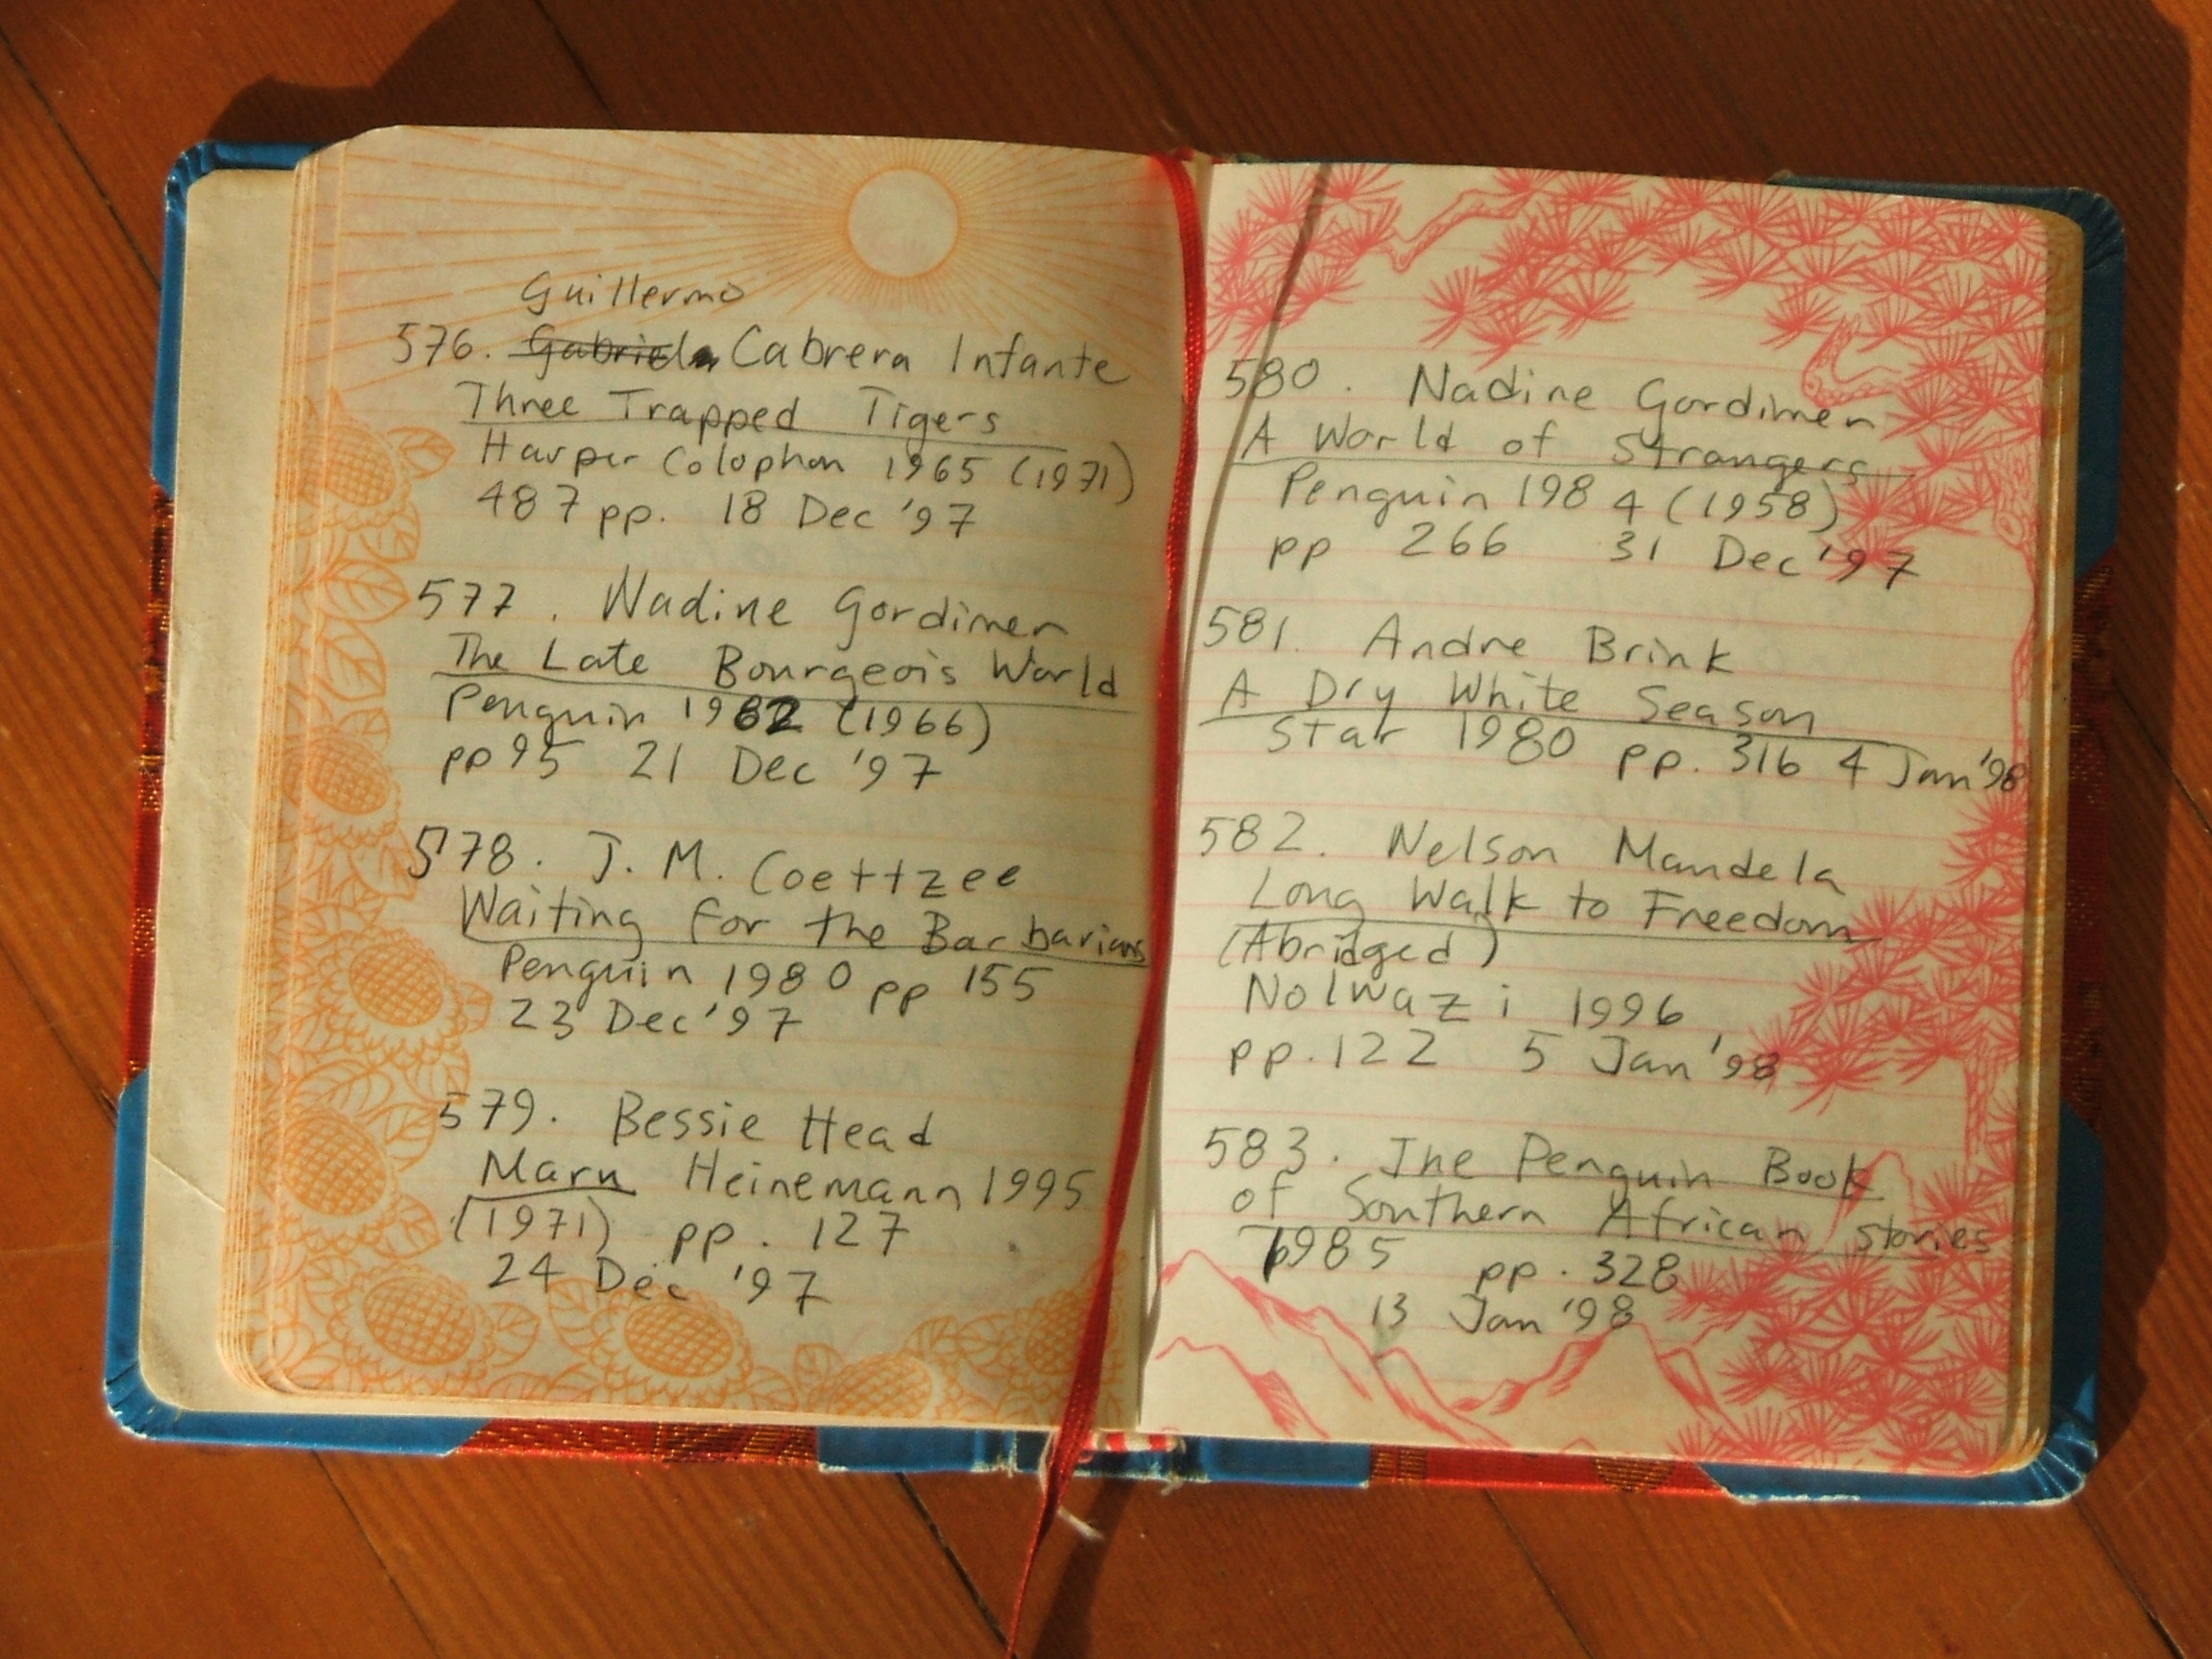 Guillermo
576. Gabriela Cabrera Infante
Three Trapped Tigers
Harper Colophon 1965 (1971)
487 pp. 18 Dec '97
577. Nadine Gordimer
The Late Bourgeois World
Penguin 1982 (1966)
pp 95 21 Dec '97
578. J. M. Coettzee
Waiting for the Barbarians
Penguin 1980 pp 155
23 Dec '97
579. Bessie Head
Maru Heinemann 1995
(1971) pp. 127
24 Dec '97
580. Nadine Gordimer
A World of Strangers
Penguin 1984 (1958)
pp 266 31 Dec '97
581. Andre Brink
A Dry White Season
Star 1980 pp. 316 4 Jan '98
582. Nelson Mandela
Long Walk to Freedom
(Abridged)
Nolwazi 1996
pp. 122 5 Jan '98
583. The Penguin Book
of Southern African Stories
1985 pp. 328
13 Jan '98